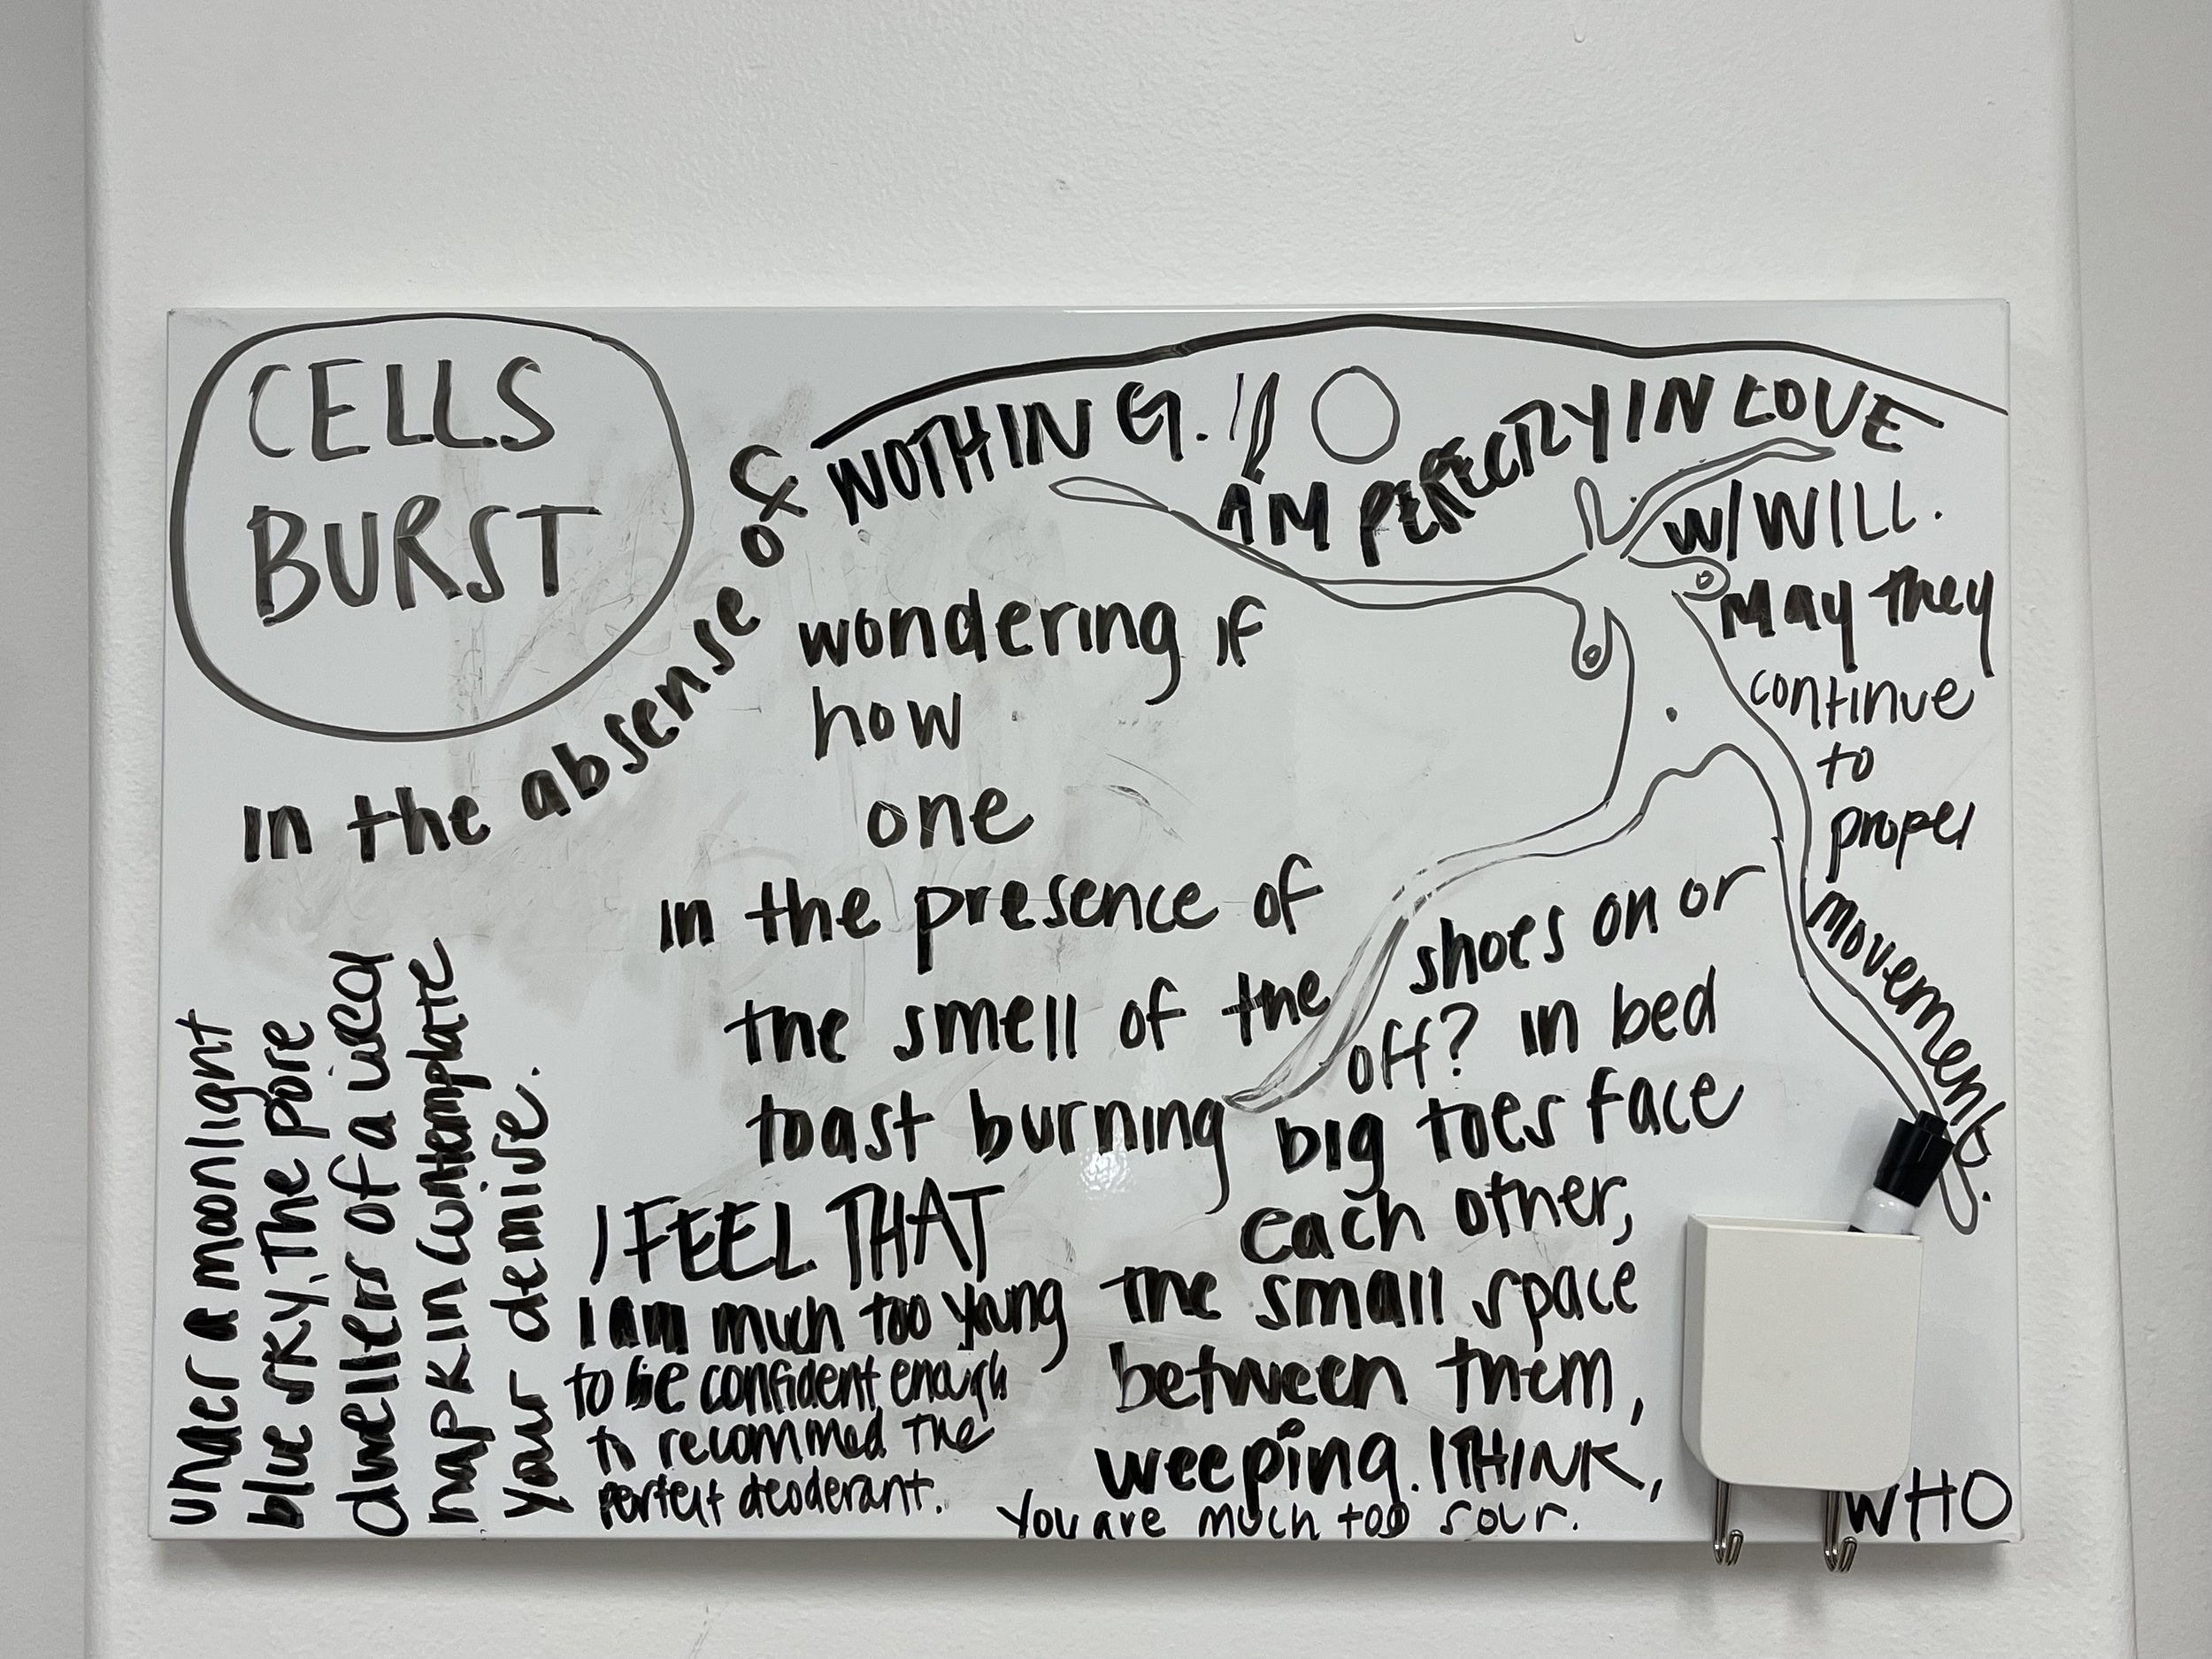 CELLS
BURST
in the absense of
NOTHING. I
AM PERFECTLY IN LOVE
W/ WILL.
May they
continue
to
propel
movement.
wondering if
how
one
in the presence of
the smell of the
toast burning
shoes on or
off? in bed
big toes face
each other,
the small space
between them,
weeping. I THINK,
You are much too sour.
WHO
under a moonlight
blue sky. The pore
dwellers of a used
napkin contemplate
your demise.
I FEEL THAT
I am much too young
to be confident enough
to recommed the
perfect deoderant.